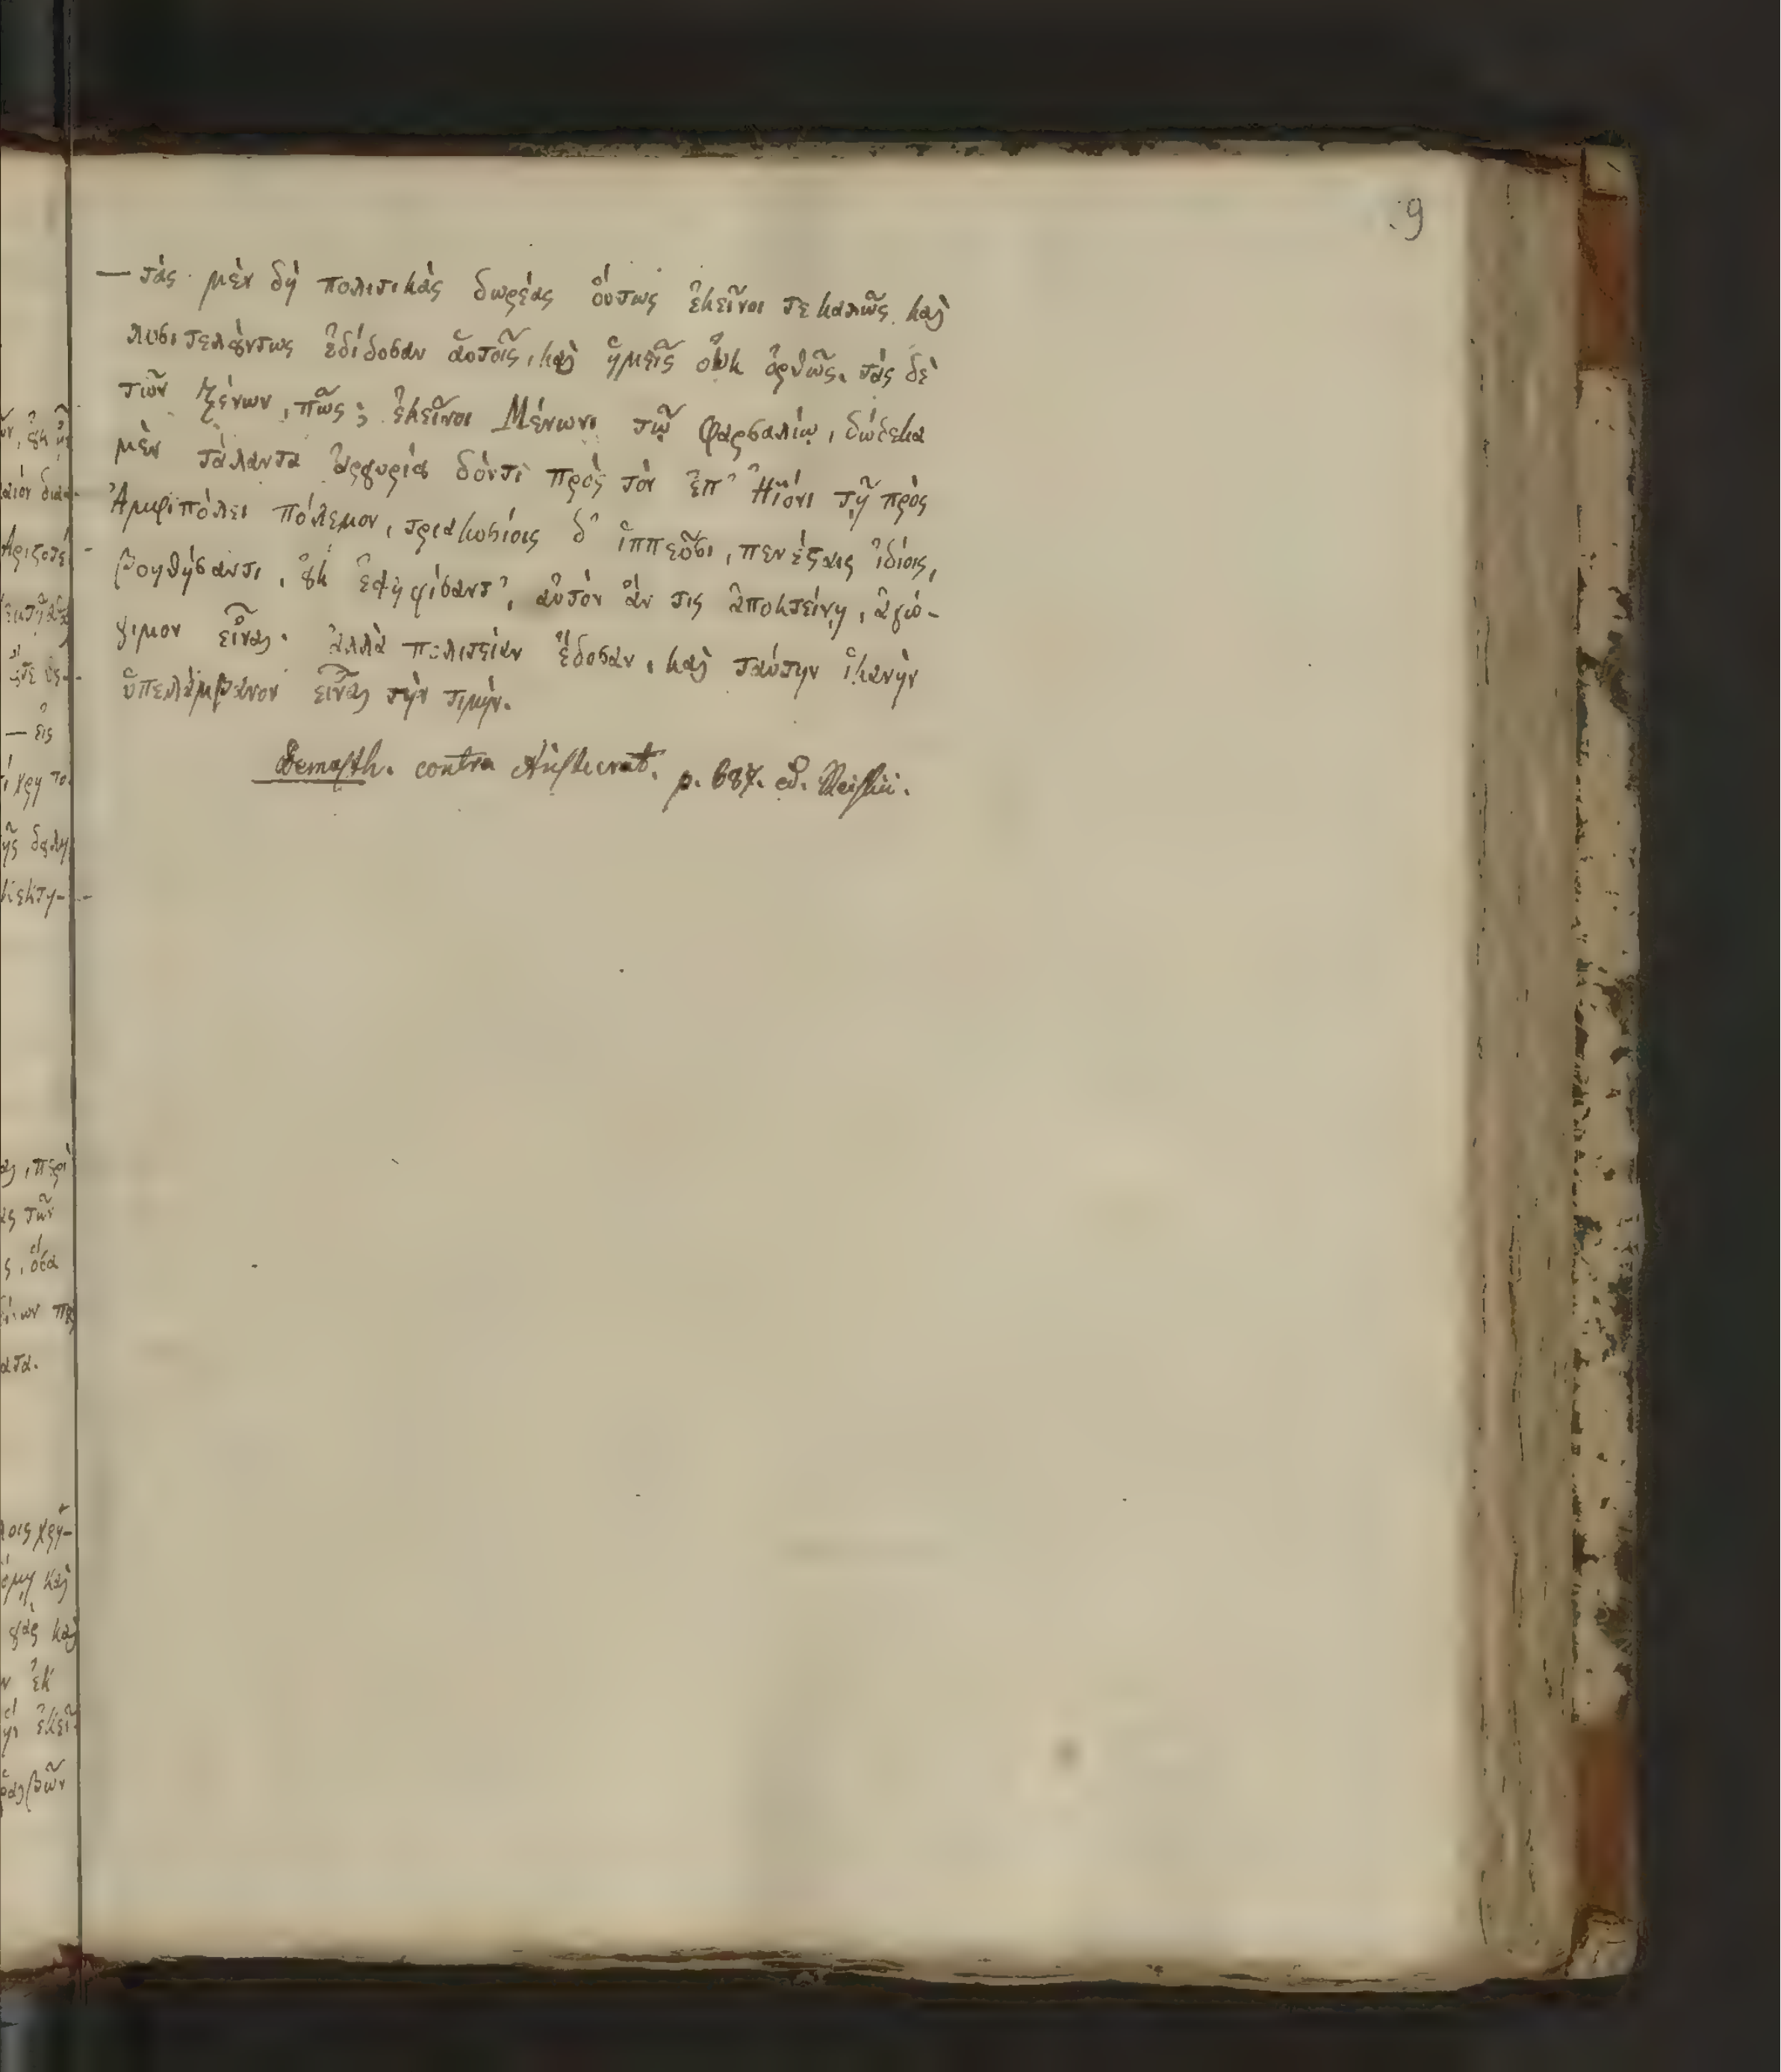 9
— τὰς μὲν δὴ πολιτικὰς δωρέας οὕτως ἐκεῖνοι τε καλῶς καὶ
λυσιτελούντως ἐδίδοσαν αὑτοῖς, καὶ ἡμεῖς οὐκ ὀρθῶς. τὰς δὲ
τῶν ξένων, πῶς; ἐκεῖνοι Μένωνι τῷ Φαρσαλίῳ, δώδεκα
μὲν τάλαντα ἀργυρίου δόντι πρὸς τὸν ἐπ' Ἠϊόνι τῇ πρὸς
Ἀμφιπόλει πόλεμον, τριακοσίοις δ' ἱππεῦσι, πενέσταις ἰδίοις,
βοηθήσαντι, οὐκ ἐψηφίσαντ', αὐτὸν ἄν τις ἀποκτείνῃ, ἀγώ-
γιμον εἶναι. ἀλλὰ πολιτείαν ἔδοσαν, καὶ ταύτην ἱκανὴν
ὑπελάμβανον εἶναι τὴν τιμήν.
Demosth. contra Aristocrat. p. 687. ed. Reiskii.